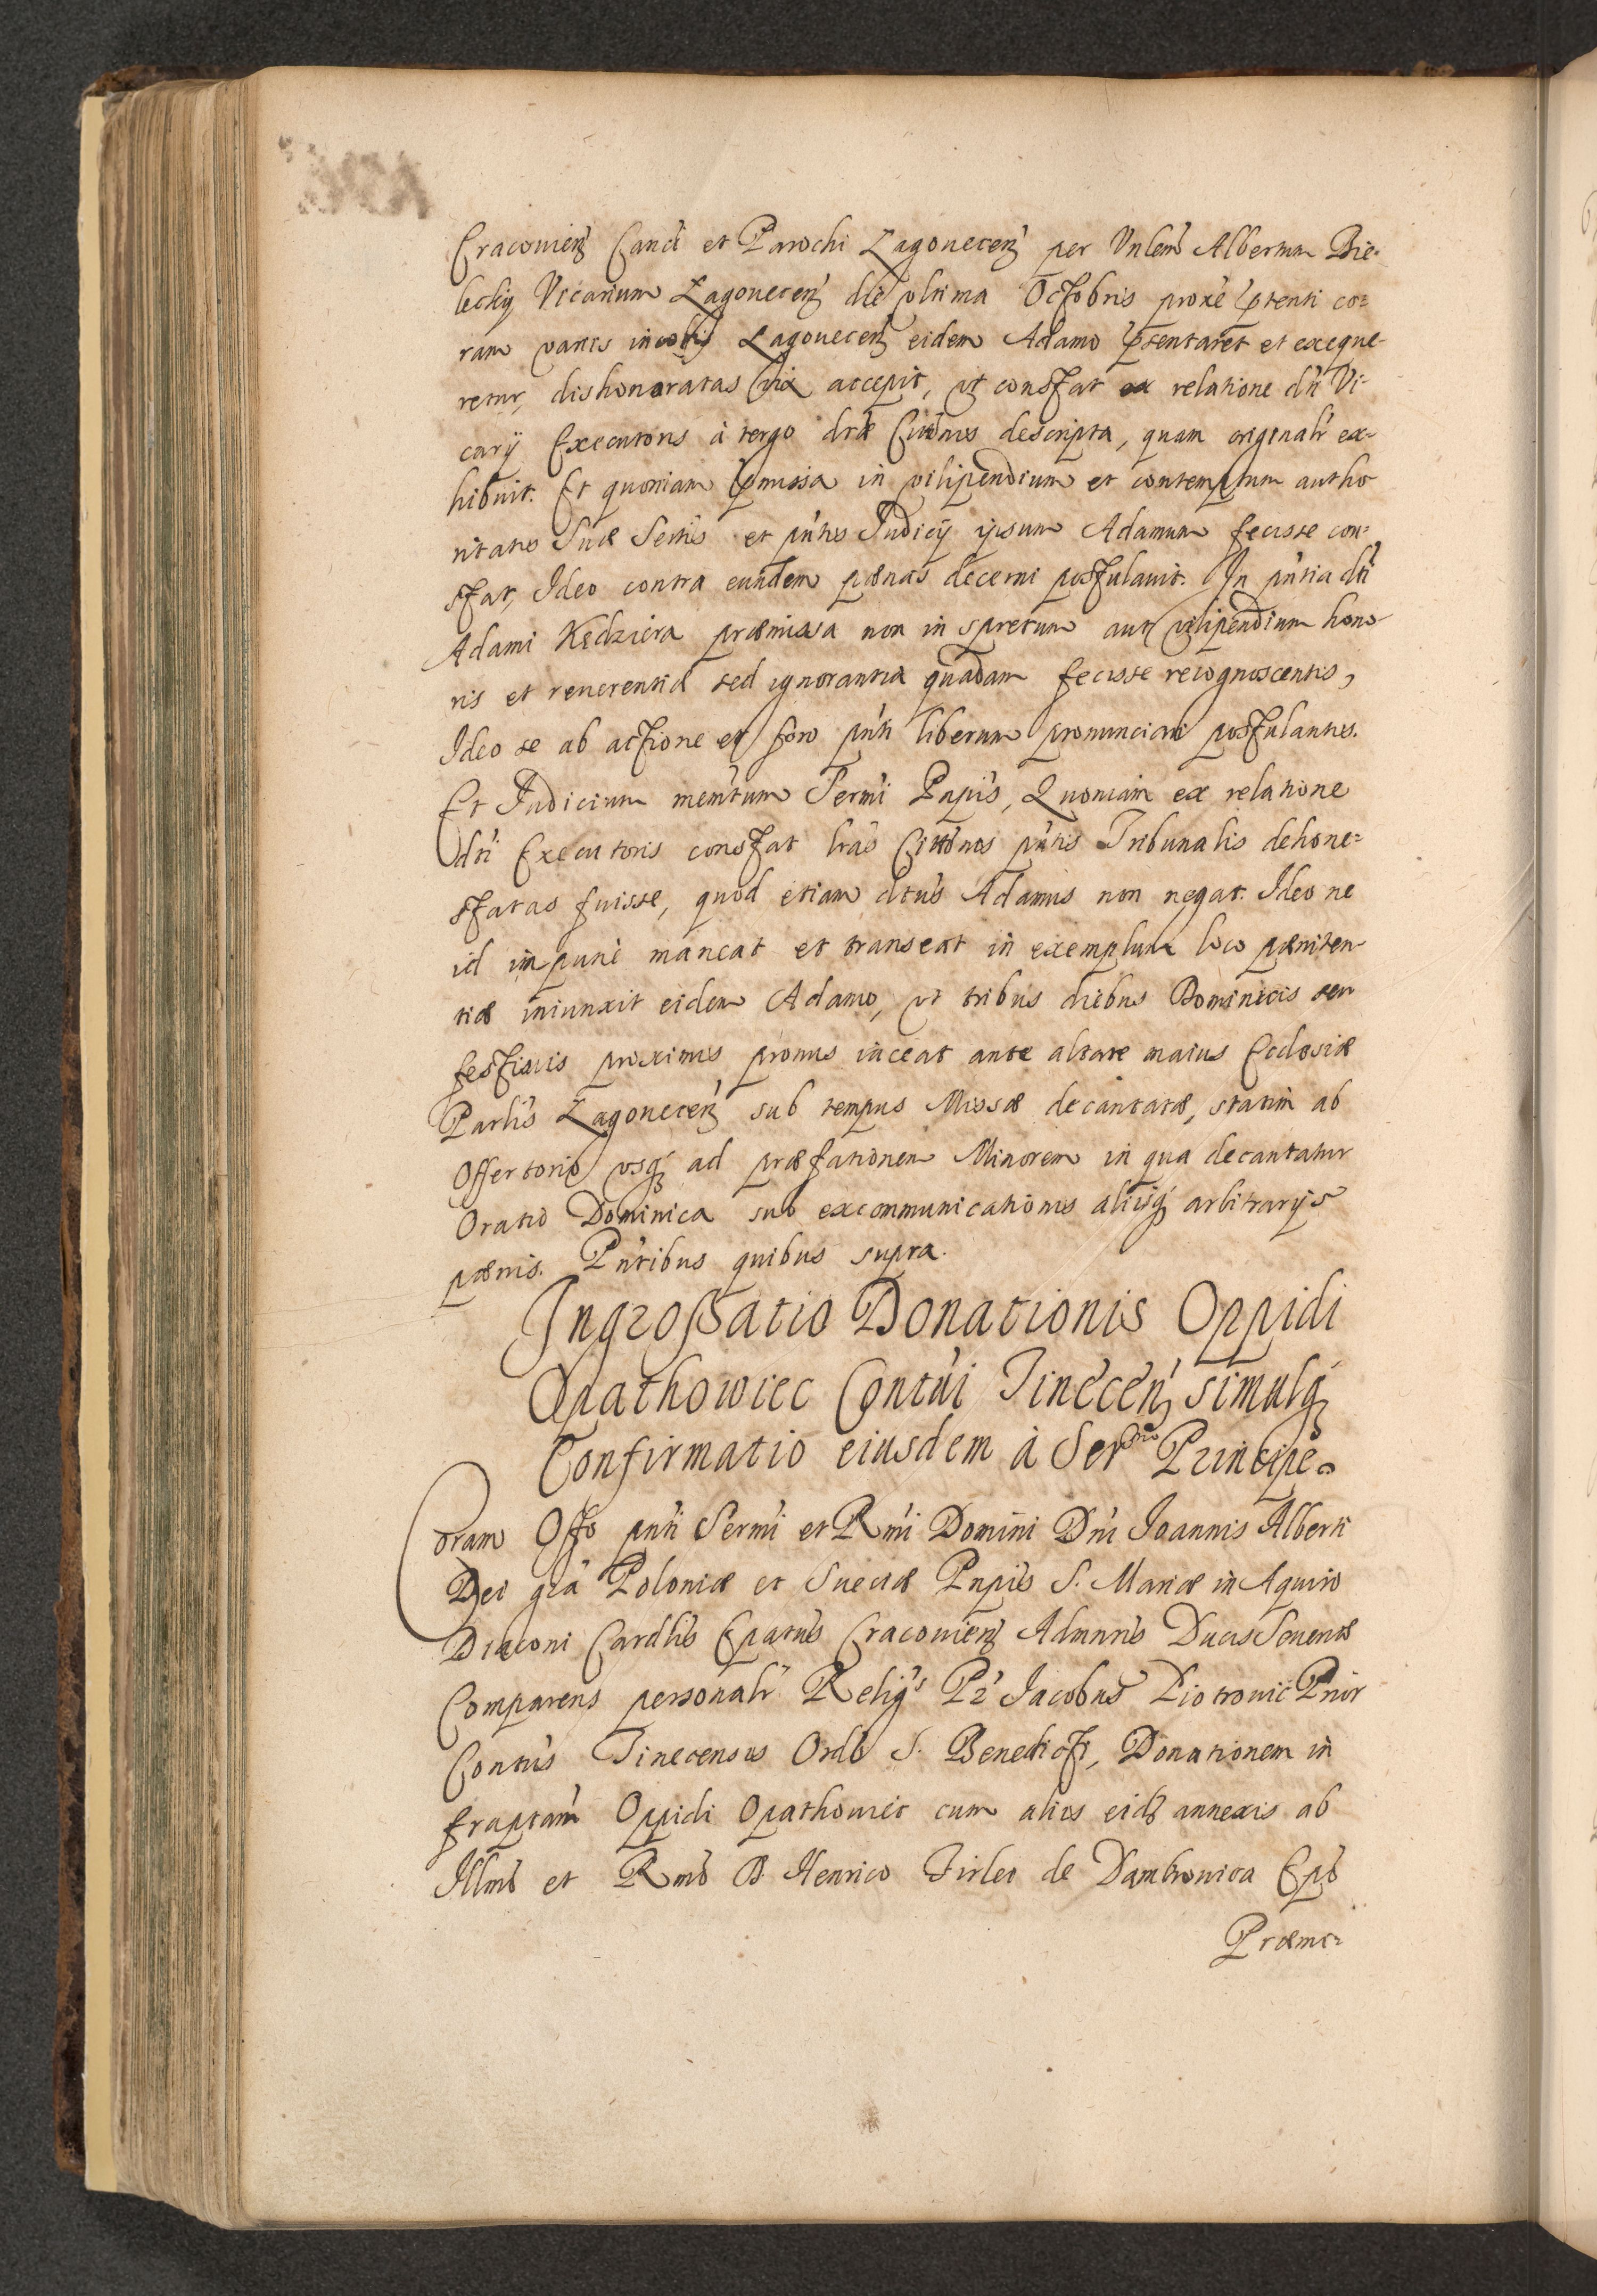 Cracouien̄ Canci et Parochi Lagouecen̄ per Vnlem Albertum Bie-
lecky Vicarium Lagouecen̄ die vltima Octobris proxe ptenti co=
ram varijs incolis Lagouecen̄ eidem Adamo pńtentaret et exeque-
retur, dishonoratas vix accepit, vt constat ex relatione dti Vi-
carij Executoris à tergo dtæ Cittonis descripta, quam originalr ex-
hibuit. Et quoniam pmissa in vilipendium et contemptum autho
ritatis Suæ Sertis et pntis Judicij ipsum Adamum fecisse con-
stat, Ideo contra eundem pænas decerni postulauit. In pntia dti
Adami Kędziera præmissa non in spretum aut vilipendium hono
ris et reuerentiæ sed ignorantia quadam fecisse recognoscentis,
Ideo se ab actione et foro pnti liberum pronunciari postulantis.
Et Judicium memtum Sermi Pnpis, Quoniam ex relatione
dti Executoris constat lras Cittonos pntis Tribunalis dehone=
statas fuisse, quod etiam dtus Adamus non negat. Ideo ne
id impunè maneat et transeat in exemplum loco pæniten-
tiæ iniunxit eidem Adamo, vt tribus diebus Dominicis seu
festiuis proximis pronus iaceat ante altare maius Ecclesiæ
Parlis Lagouecen̄ sub tempus Missæ decantatæ, statim ab
Offertorio vsq ad præfationem Minorem in qua decantatur
Oratio Dominica sub excommunicationis alijsq arbitrarijs
pænis. Pntibus quibus supra.
Ingroßatio Donationis Oppidi
Opathowiec Contui Tinecen̄ simulq
Confirmatio eiusdem à Sermo Principe.
Coram Offo pnti Sermi et Rmi Domini Dni Joannis Alberti
Dei gra Poloniæ et Sueciæ Pnpis S. Mariæ in Aquiro
Diaconi Cardlis Epatus Cracouien̄ Admnris Ducis Seueriæ
Comparens personalr Religs Pr Jacobus Piotrouic Prior
Contus Tinecensis Ordis S. Benedicti, Donationem in
fraptam Oppidi Opathouiec cum alijs eidē annexis ab
Illmo et Rmo D. Henrico Firleo de Dambrouica Epo
Præmi=